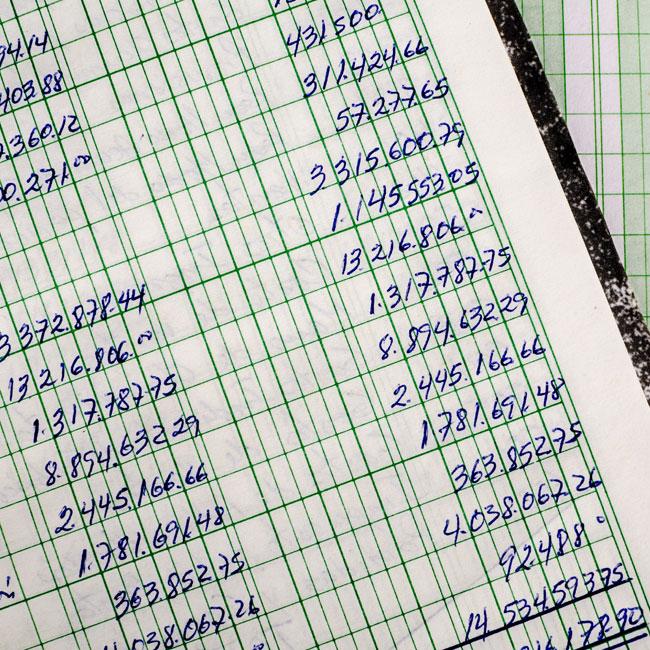 94.14
403.88
.360.12
0.271.00
3 372.878.44
13 216.806.00
1.317.787.75
8.894.632 29
2.445.166.66
1.781.691.48
363.852.75
038.067.26
431500.
311.424.66
57.277.65
3 315 600.79
1.145553.05
13 216.806.
1.317.787.75
8.894.632 29
2.445.166.66
1.781.691.48
363.852.75
4.038.067.26
92.488
14 534.593.75
178.90